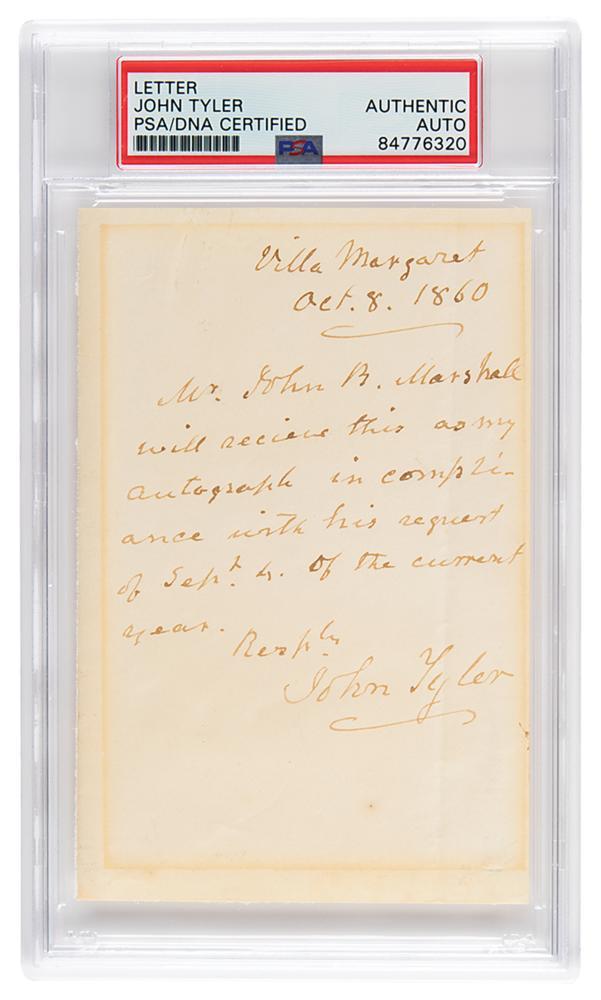 LETTER
JOHN TYLER
PSA/DNA CERTIFIED
AUTHENTIC
AUTO
84776320
PSA
Villa Margaret
Oct. 8. 1860
Mr. John B. Marshall
will recieve this as my
autograph in compli-
ance with his request
of Sept. 4. of the current
year.
Resply
John Tyler